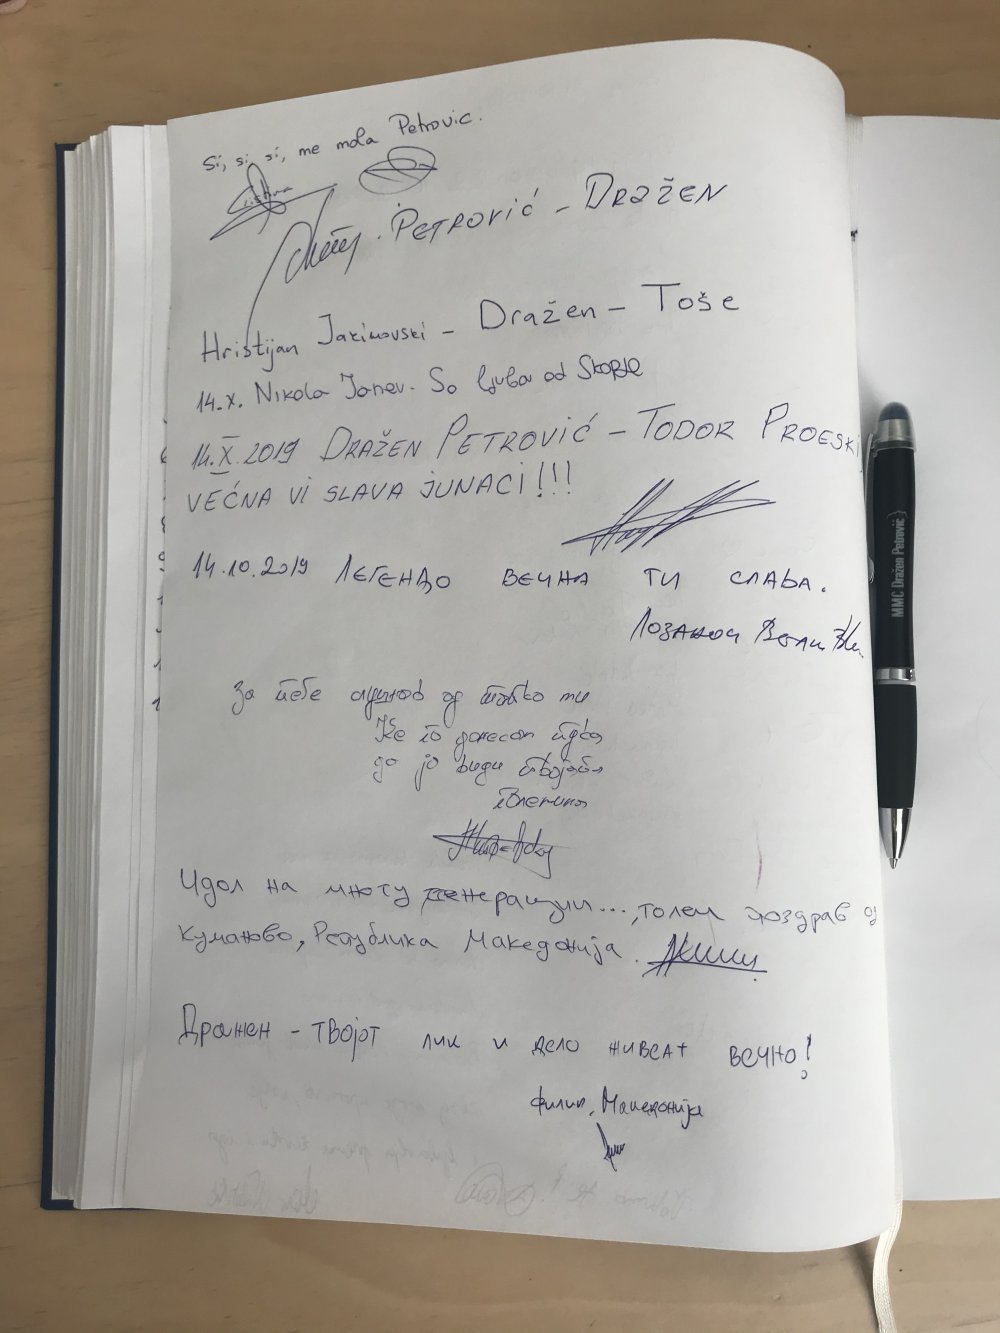 Si, si, si, me mola Petrovic.
PETROVIĆ - DRAŽEN
Hristijan Jakimovski - Dražen - Toše
14.X. Nikola Janev. So ljubov od Skopje
14.X.2019 DRAŽEN PETROVIĆ - TODOR PROESKI,
VEČNA VI SLAVA JUNACI!!!
14.10.2019 ЛЕГЕНДО ВЕЧНА ТИ СЛАВА.
За тебе од татко ми
Ќе го донесам
да ја види твојата
Идол на многу генерации..., голем поздрав од
Куманово, Република Македонија.
Дражен - твојот лик и дело живеат вечно!
Филип, Македонија
MMC Dražen Petrović